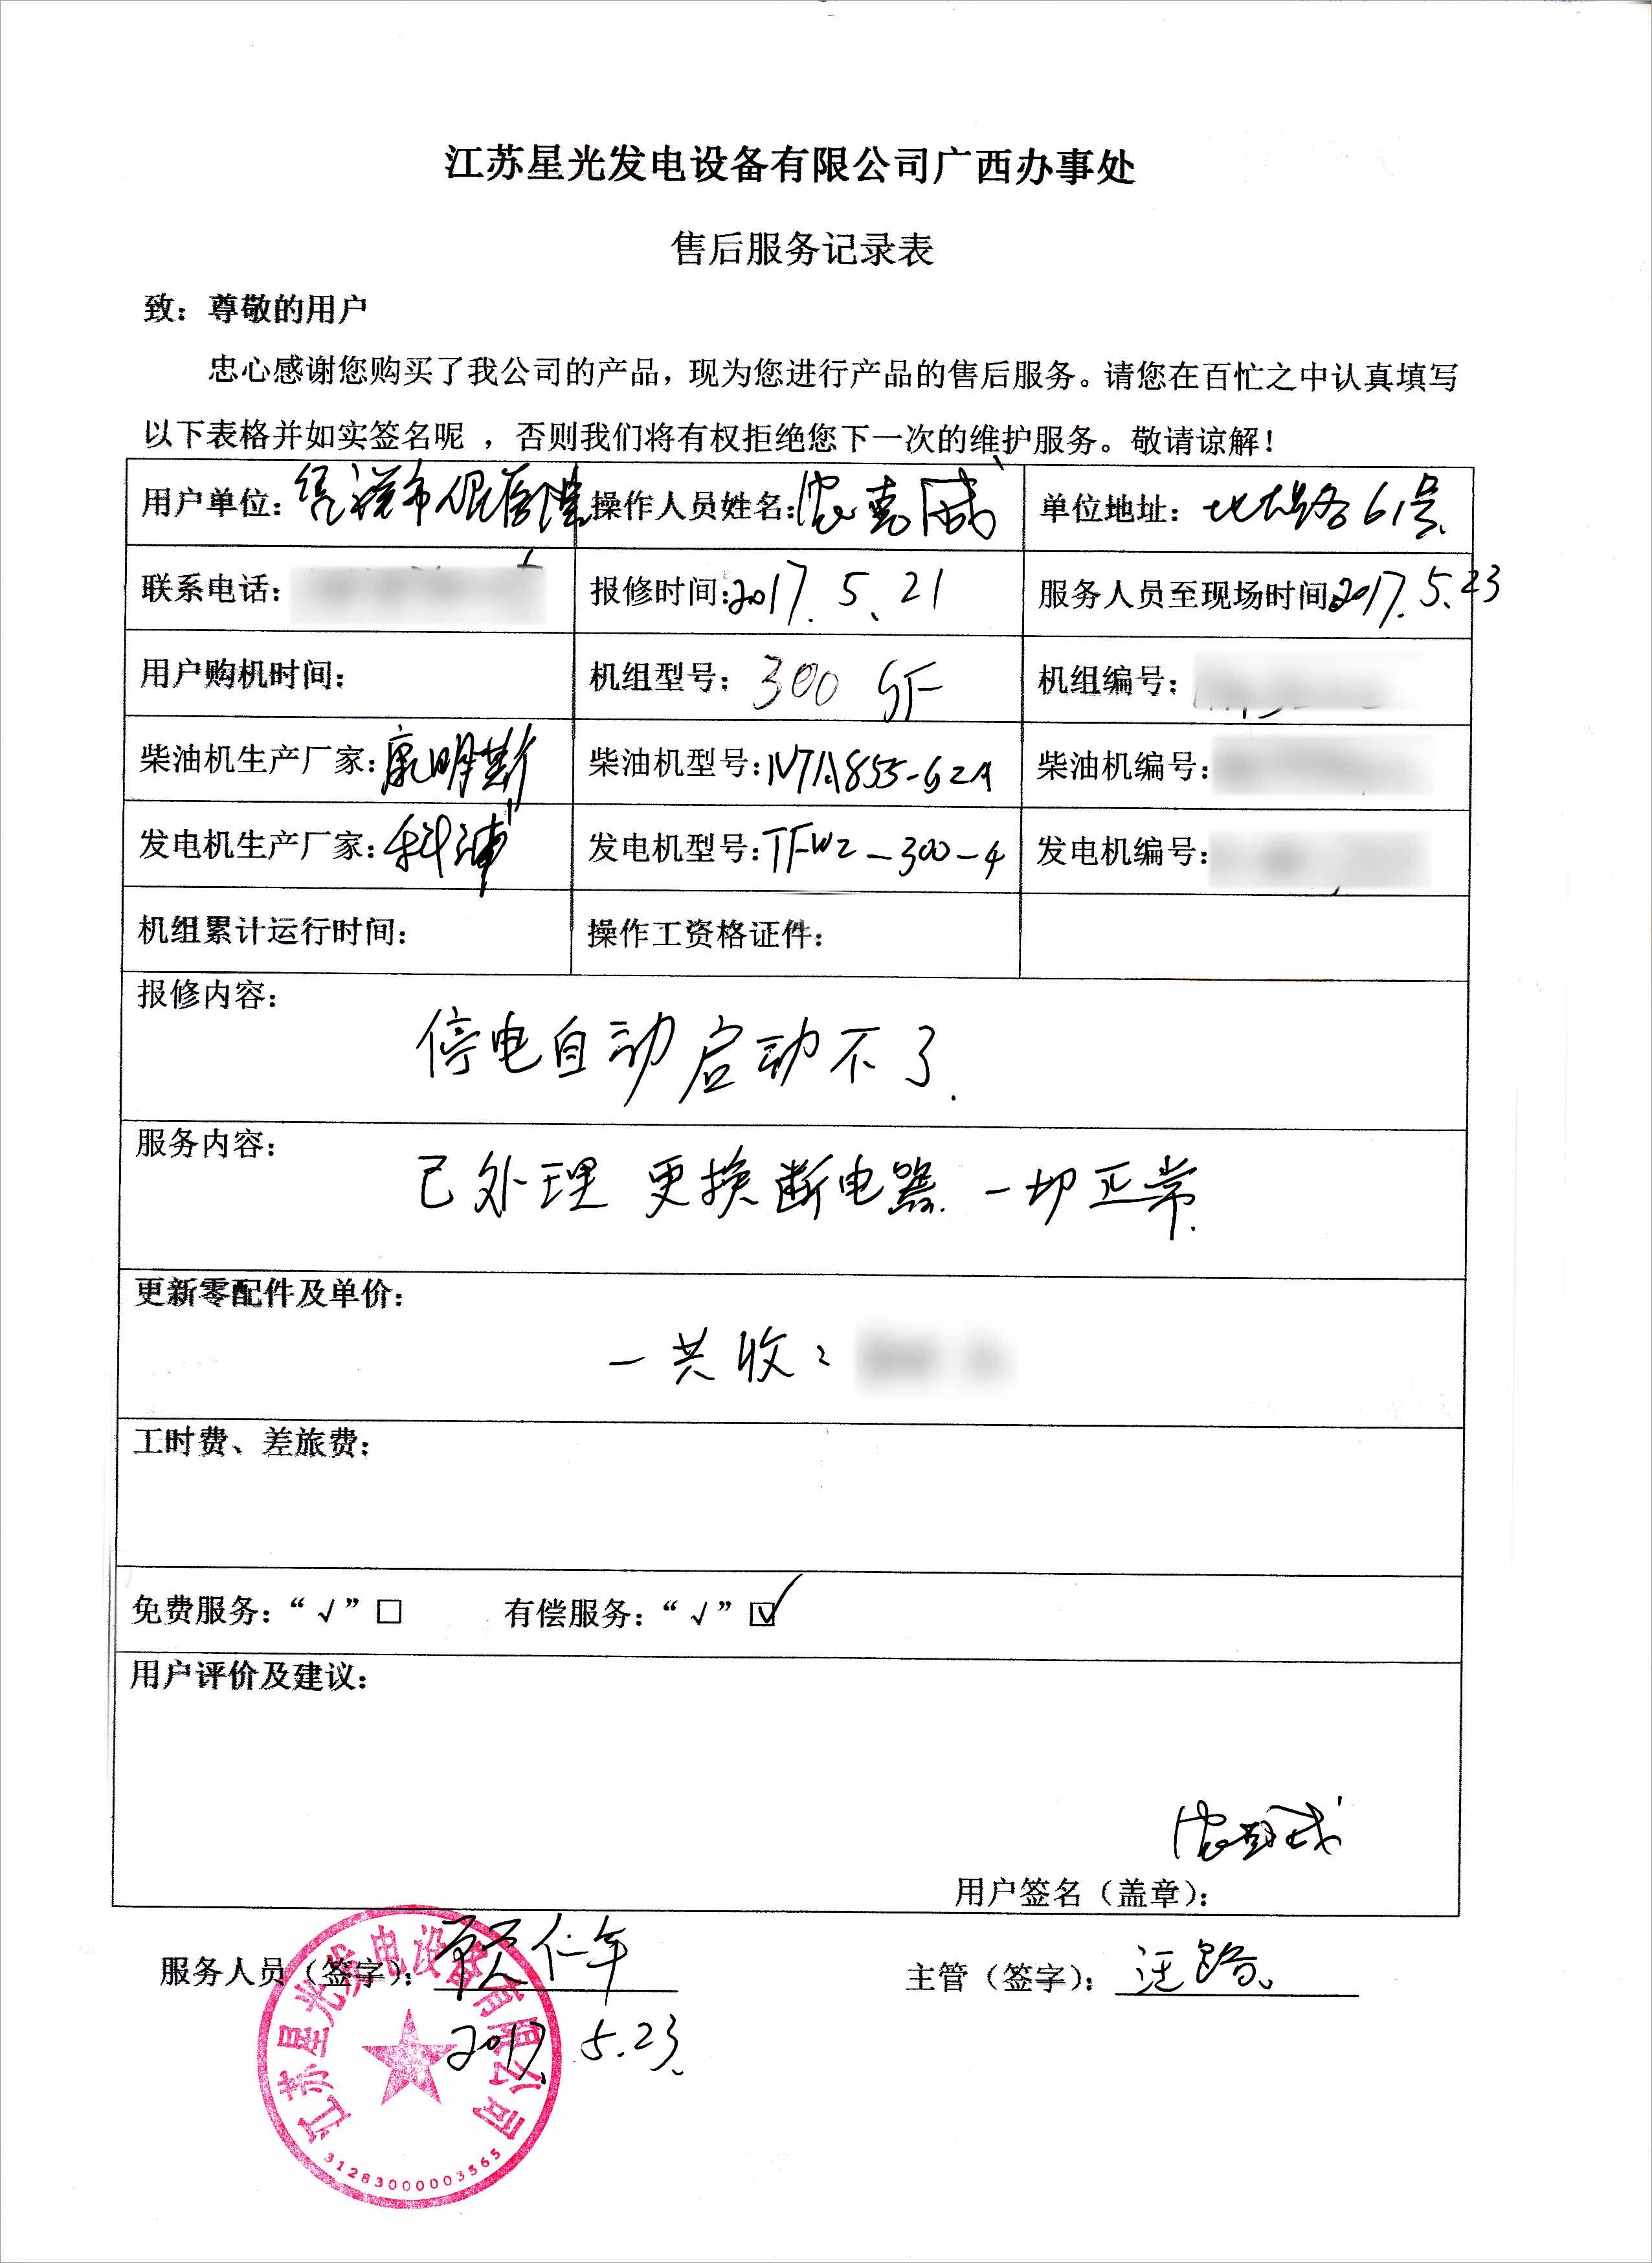 江苏星光发电设备有限公司广西办事处
售后服务记录表
致：尊敬的用户
忠心感谢您购买了我公司的产品，现为您进行产品的售后服务。请您在百忙之中认真填写
以下表格并如实签名呢 ，否则我们将有权拒绝您下一次的维护服务。敬请谅解！
用户单位： 操作人员姓名： 单位地址： 61号
联系电话： 报修时间：2017.5.21 服务人员至现场时间：2017.5.23
用户购机时间： 机组型号：300 GF 机组编号：
柴油机生产厂家：康明斯 柴油机型号：NTA855-G2A 柴油机编号：
发电机生产厂家：科浦 发电机型号：TFW2-300-4 发电机编号：
机组累计运行时间： 操作工资格证件：
报修内容：
停电自动启动不了.
服务内容：
已处理 更换断电器. 一切正常.
更新零配件及单价：
一共收：
工时费、差旅费：
免费服务：“√”□ 有偿服务：“√”☑
用户评价及建议：
用户签名（盖章）：
服务人员（签字）：顾仁年 主管（签字）：汪路
2017.5.23.
江苏星光发电设备有限公司
31283000003565